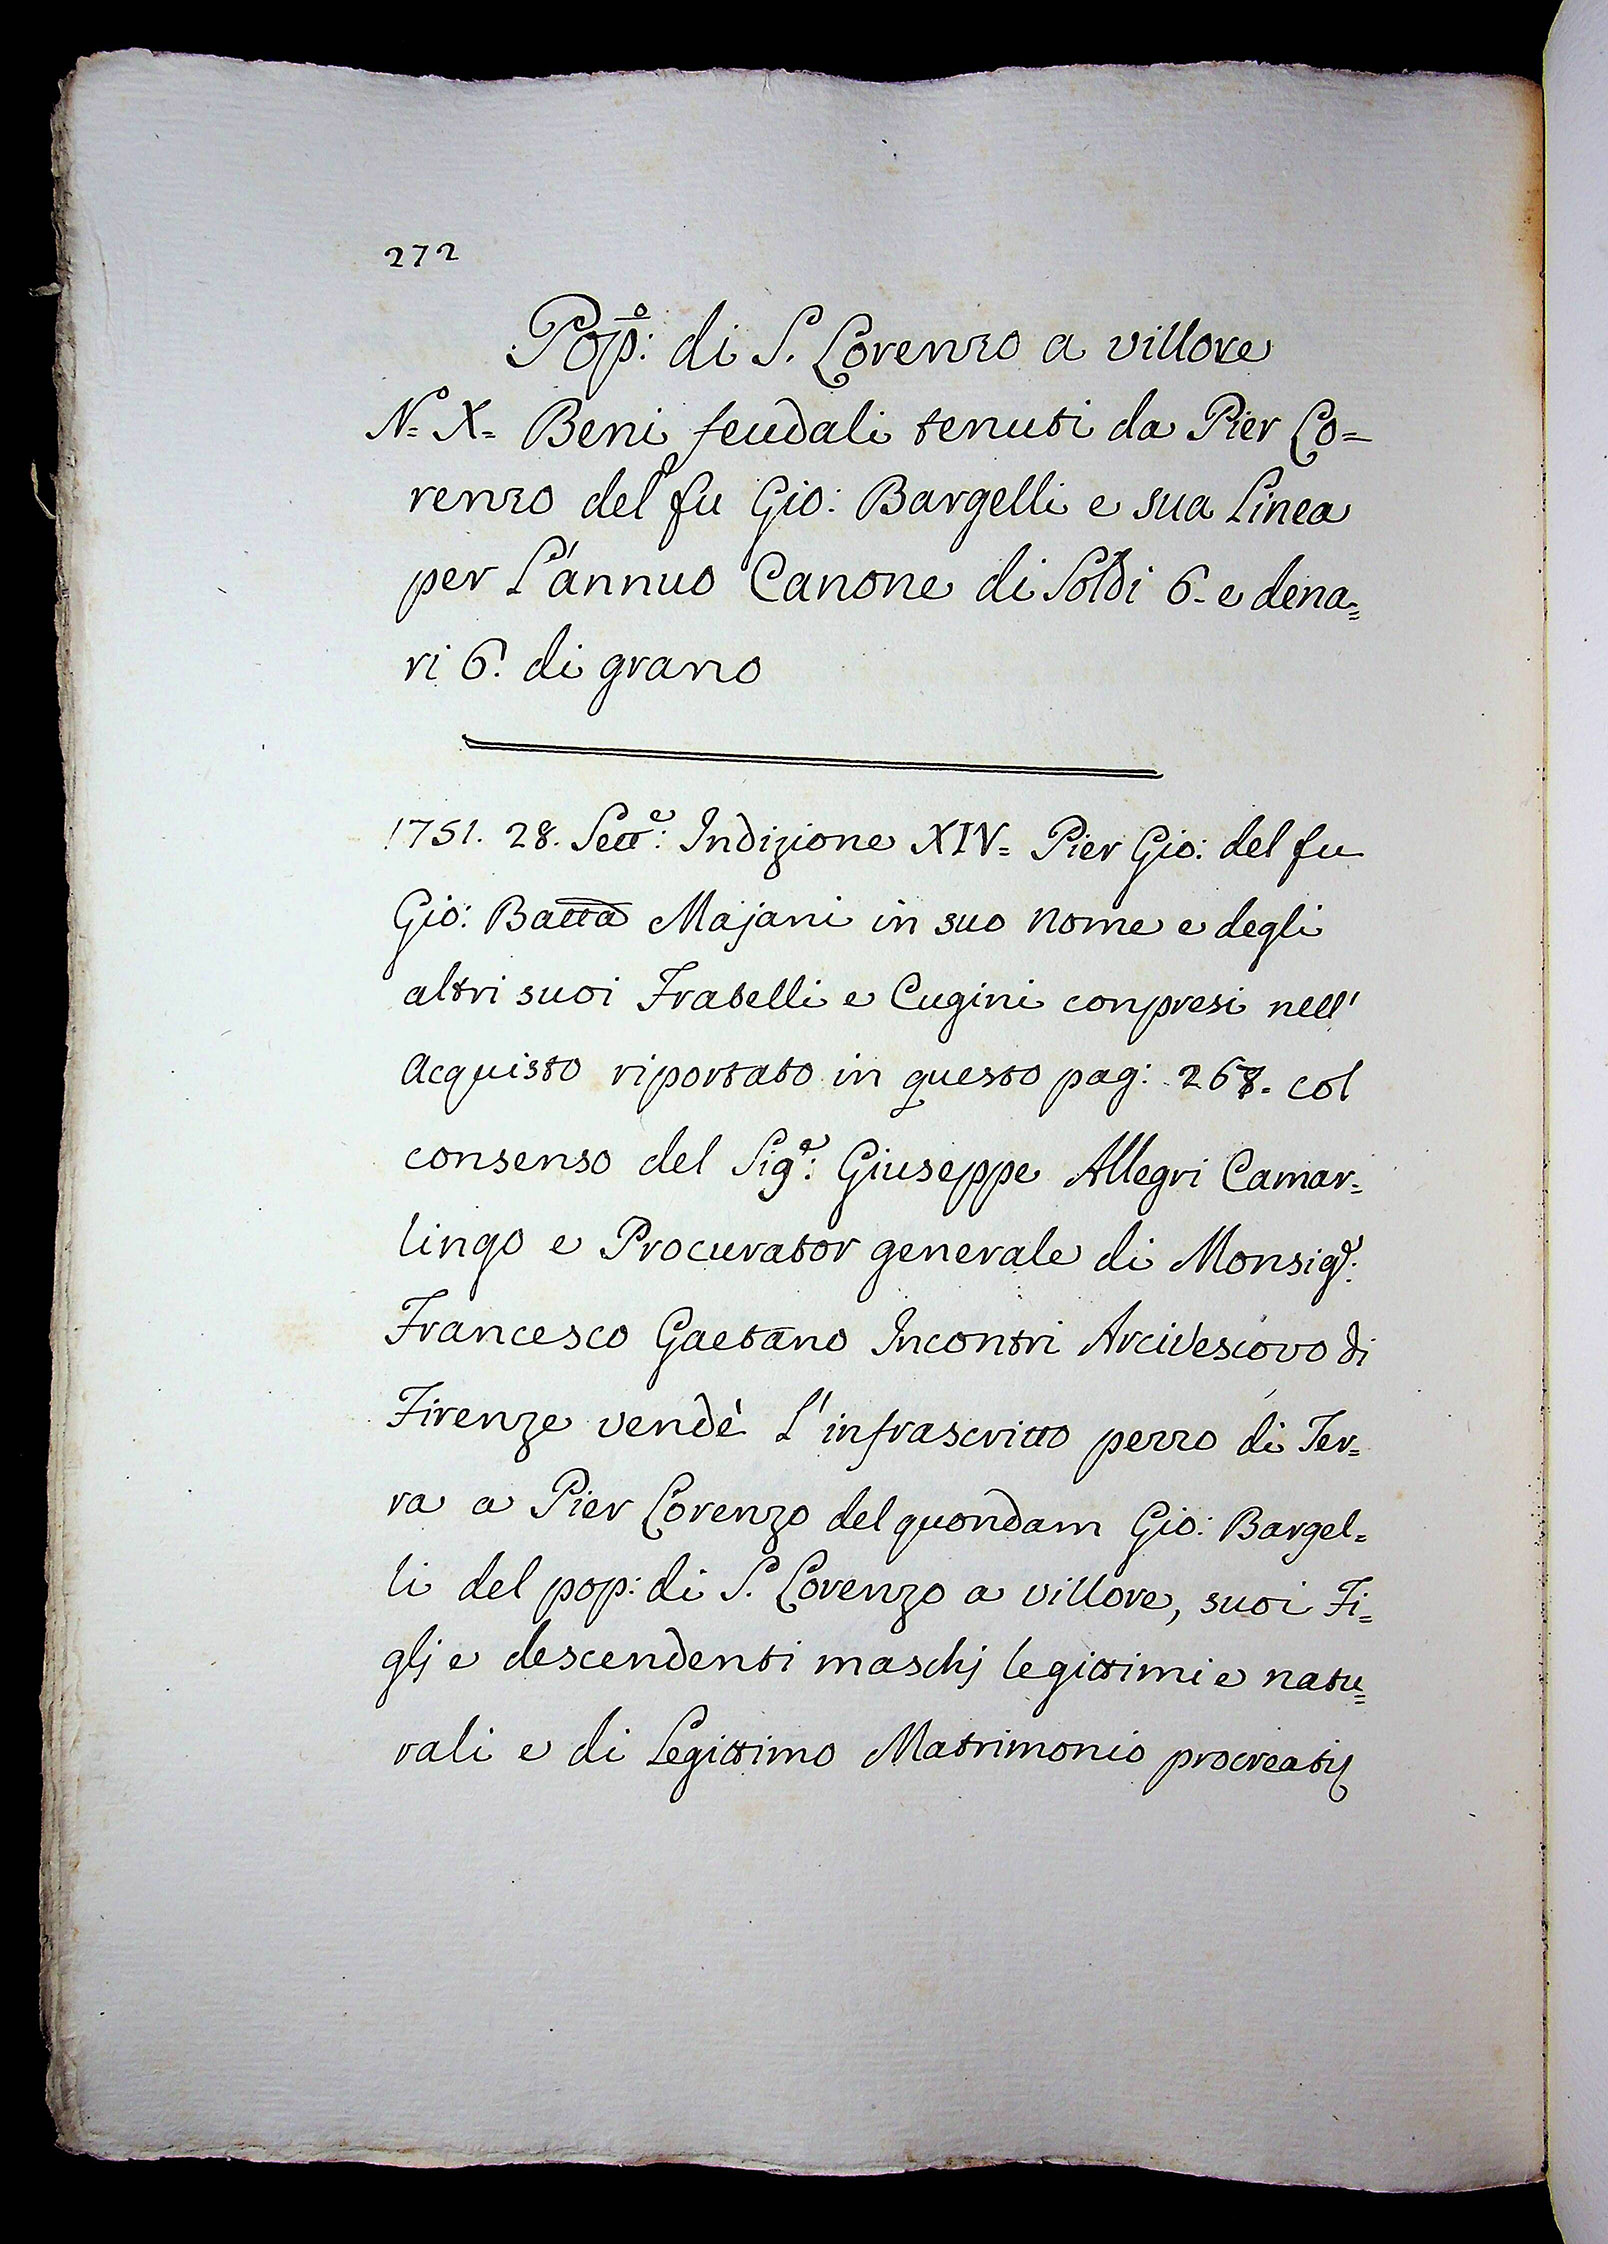 272
Pop:º di S. Lorenzo a villore
Nº X= Beni feudali tenuti da Pier Lo=
renzo del fu Gio: Bargelli e sua Linea
per L'annuo Canone di Soldi 6. e dena=
ri 6. di grano
1751. 28. Sett:e Indizione XIV= Pier Gio: del fu
Gio: Batta Majani in suo nome e degli
altri suoi Fratelli e Cugini conpresi nell'
Acquisto riportato in questo pag: col
consenso del Sig:e Giuseppe Allegri Camar=
lingo e Procurator generale di Monsig:e
Francesco Gaetano Incontri Arcivescovo di
Firenze vendè L'infrascritto pezzo di Ter=
ra a Pier Lorenzo del quondam Gio: Bargel=
li del pop: di S. Lorenzo a villore, suoi Fi=
glj e descendenti maschj legittimi e natu=
rali e di Legittimo Matrimonio procreatj